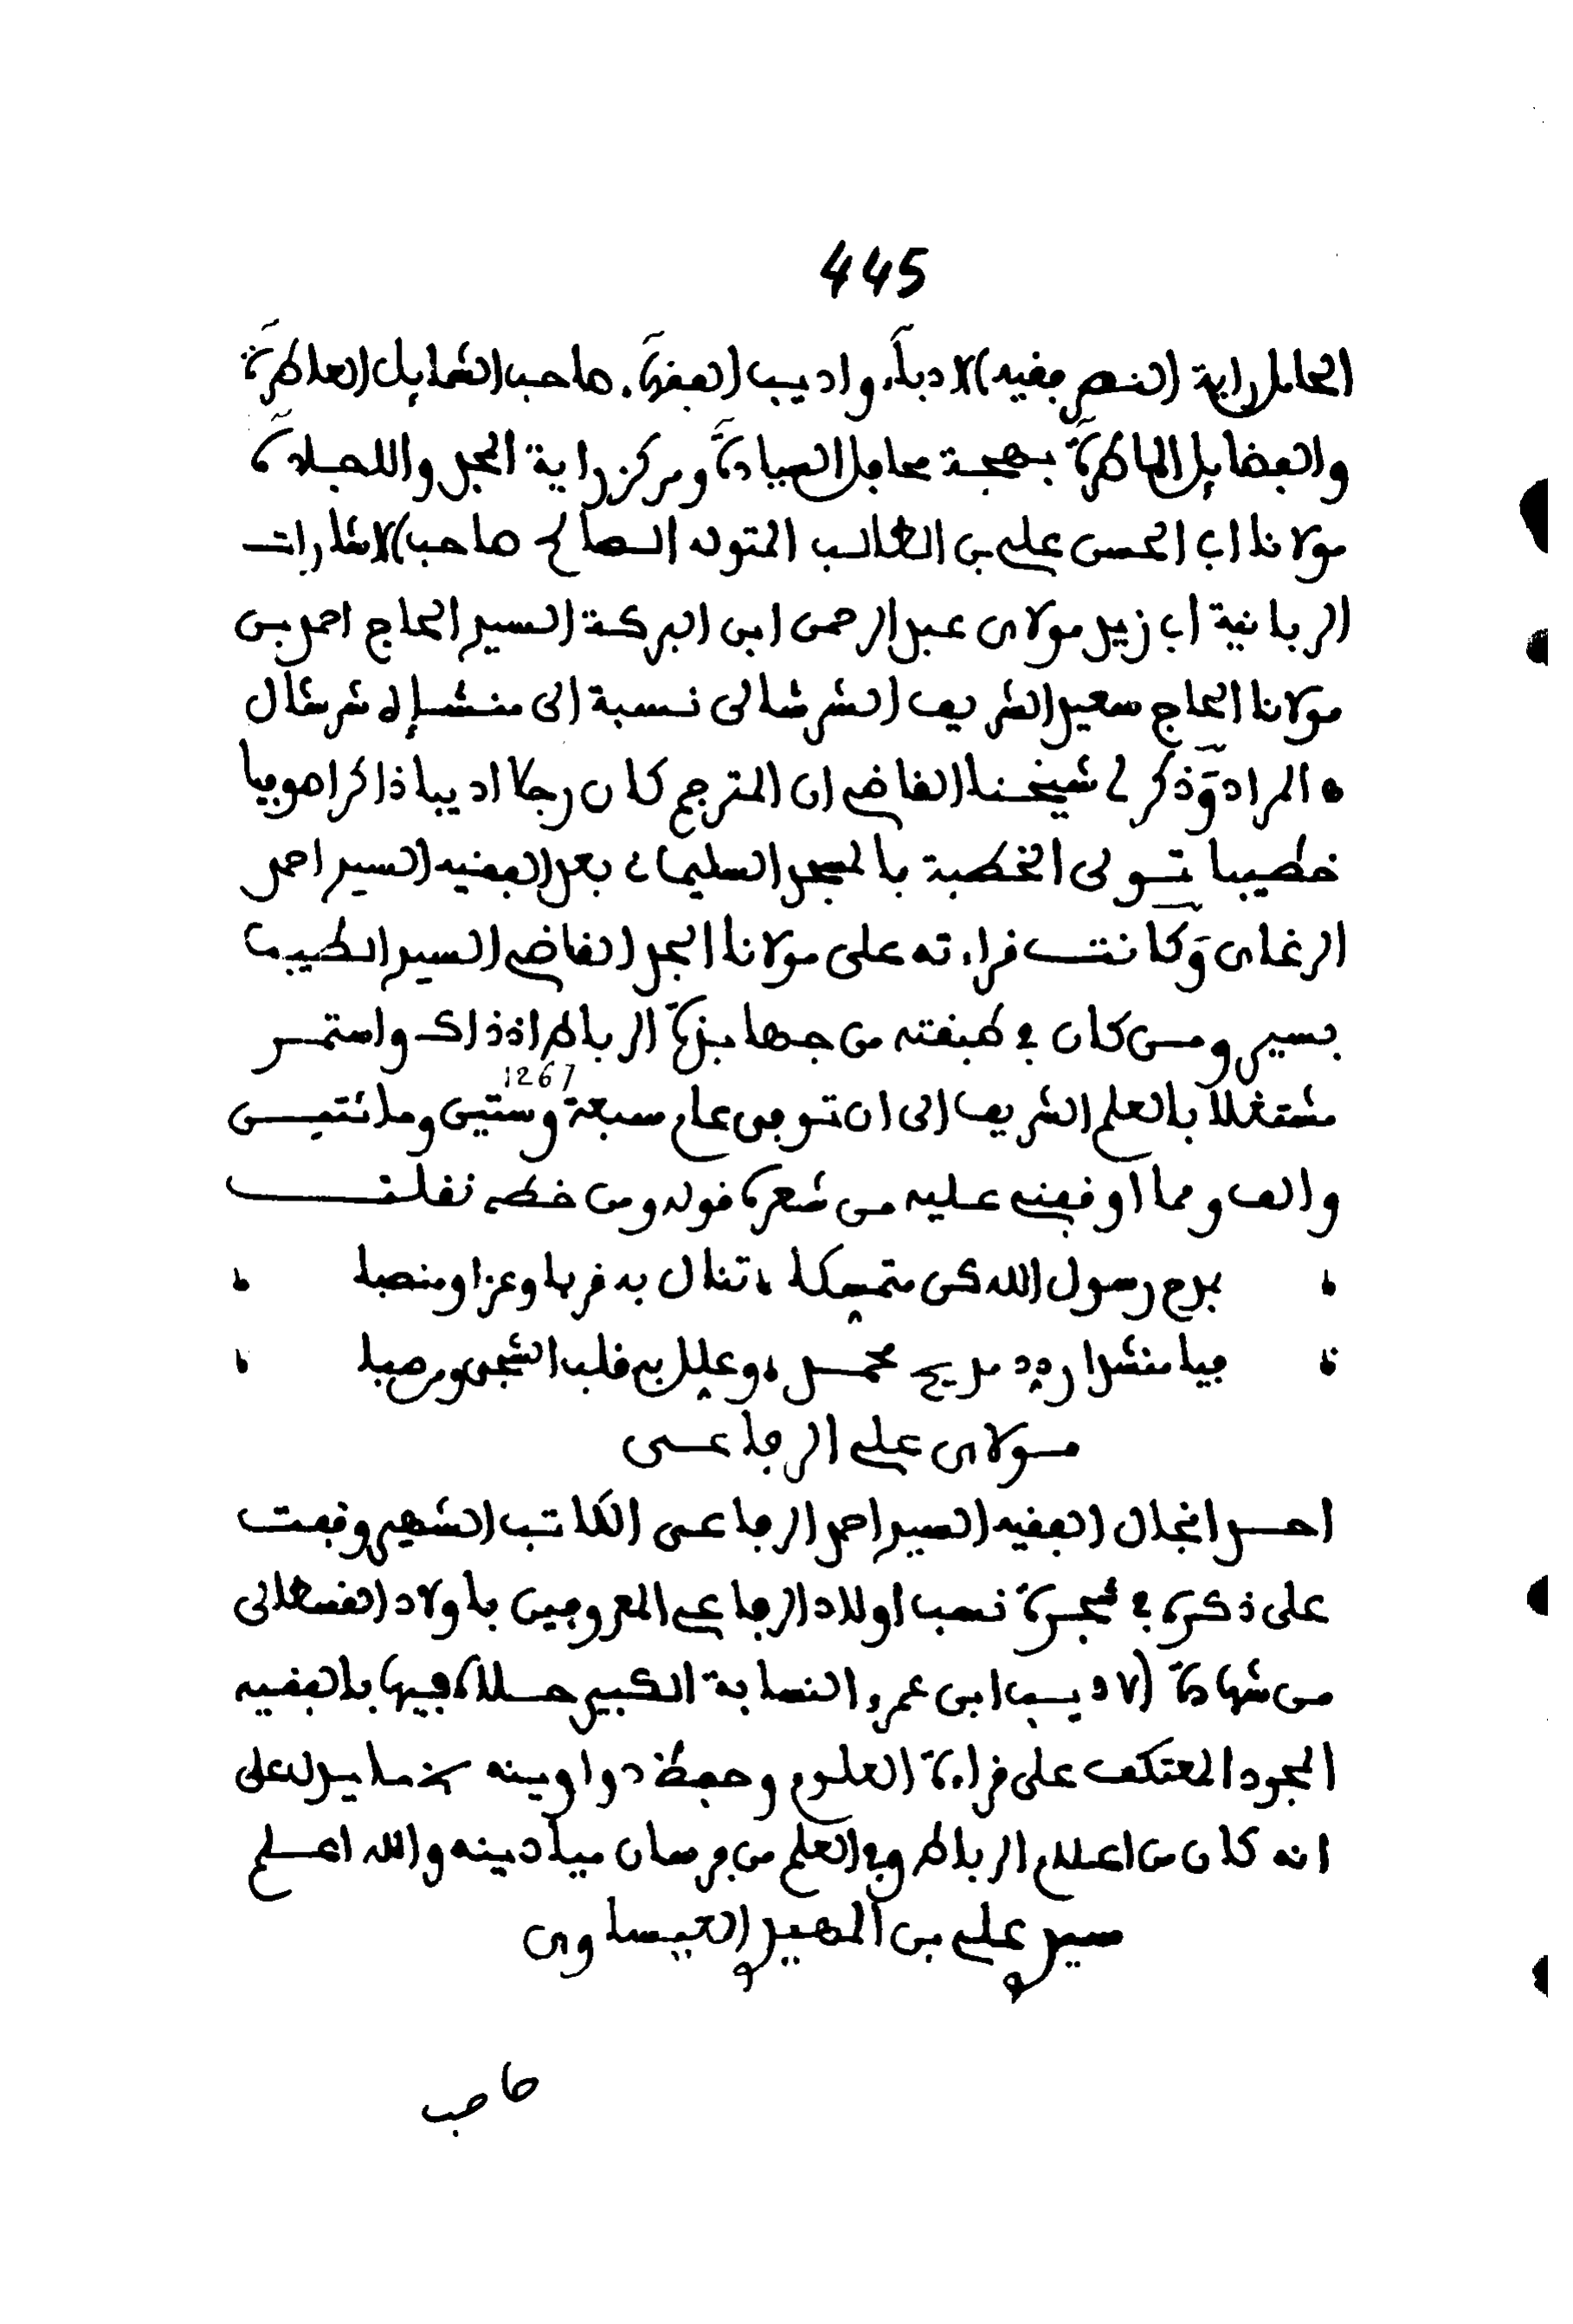 445
الحامل راية النصر فقيه الادباء، واديب الفقهاء. صاحب الشمايل العاطرة
والفضايل الماطرة بهجة محافل السيادة ومركز راية المجد والاجادة
مولانا اب الحسن علي بن الطالب المتوله الصالح صاحب الاشارات
الربانية اب زيد مولاى عبد الرحمن ابن البركة السيد الحاج احمد بن
مولانا الحاج سعيد الشريف الشرشالى نسبة الى منشإه شرشال
المرادة وذكر لى شيخنا القاضي ان المترجم كان رجلا اديبا ذاكرا صوفيا
خطيبا تولى الخطبة بالمسجد السليمانى بعد الفقيه السيد احمد
الرغاى وكانت قراءته على مولانا الجد القاضي السيد الطيب
بسير ومن كان في طبقته من جهابذة الرباط اذذاك واستمر
1267
مشتغلا بالعلم الشريف الى ان توفى عام سبعة وستين ومائتين
والف ومما اوقفني عليه من شعره قوله ومن خطه نقلت
بمدح رسول الله كن متمسكا، تنال به قربا وعزا ومنصبا
فيا منشدا ردد مديح محمد، وعلل به قلب الشجى ومرحبا
مولاى علي الرفاعى
احد انجال الفقيه السيد احمد الرفاعى الكاتب الشهير وقفت
على ذكره في شجرة نسب اولاد الرفاعي المعروفين باولاد القسطالى
من شهادة الاديب ابى عمرو النسابة الكبير حلاه فيها بالفقيه
المجود المعتكف على قراءة العلوم وحفظ دواوينه مما يدل على
انه كان من اعلام الرباط وفي العلم من فرسان ميادينه والله اعلم
سيد علي بن المهيد العيساوى
صاحب